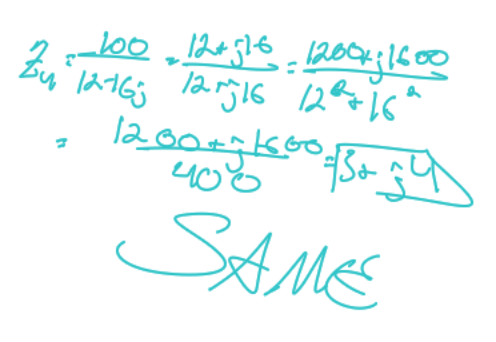 Z4 = 100/(12-16j) = (12+j16)/(12+j16) = (1200+j1600)/(12²+16²)
= (1200+j1600)/400 = 3+j4
SAME